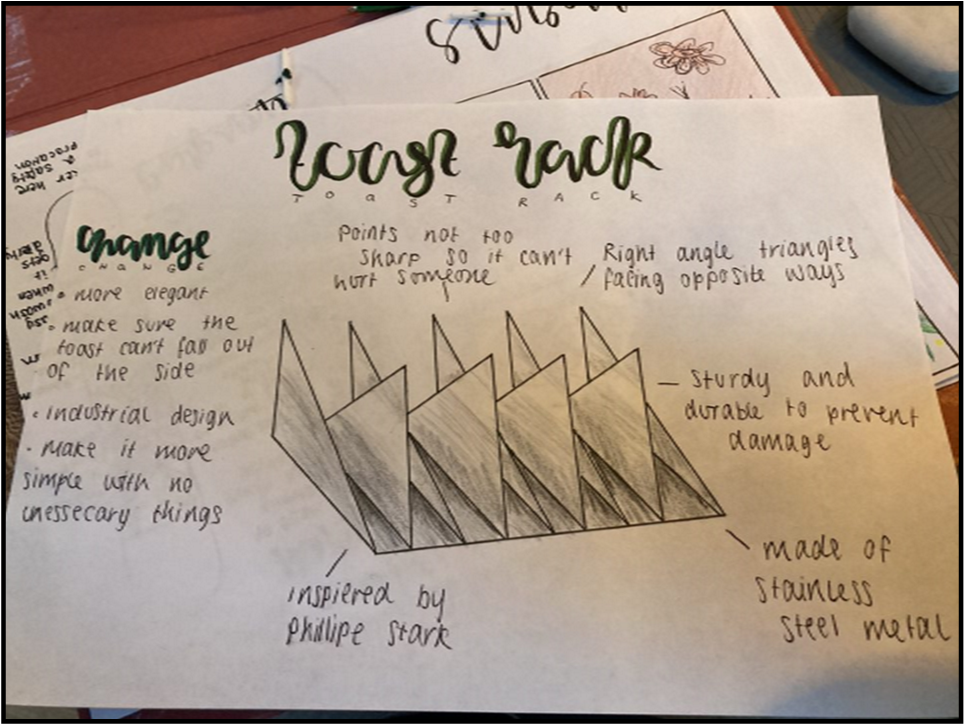 toast rack
TOAST RACK
change
CHANGE
• more elegant
• make sure the
toast can't fall out
of the side
• industrial design
• make it more
simple with no
unessecary things
Points not too
sharp so it can't
hurt someone
Right angle triangles
facing opposite ways
Sturdy and
durable to prevent
damage
made of
stainless
steel metal
inspiered by
Phillipe Stark
a safety